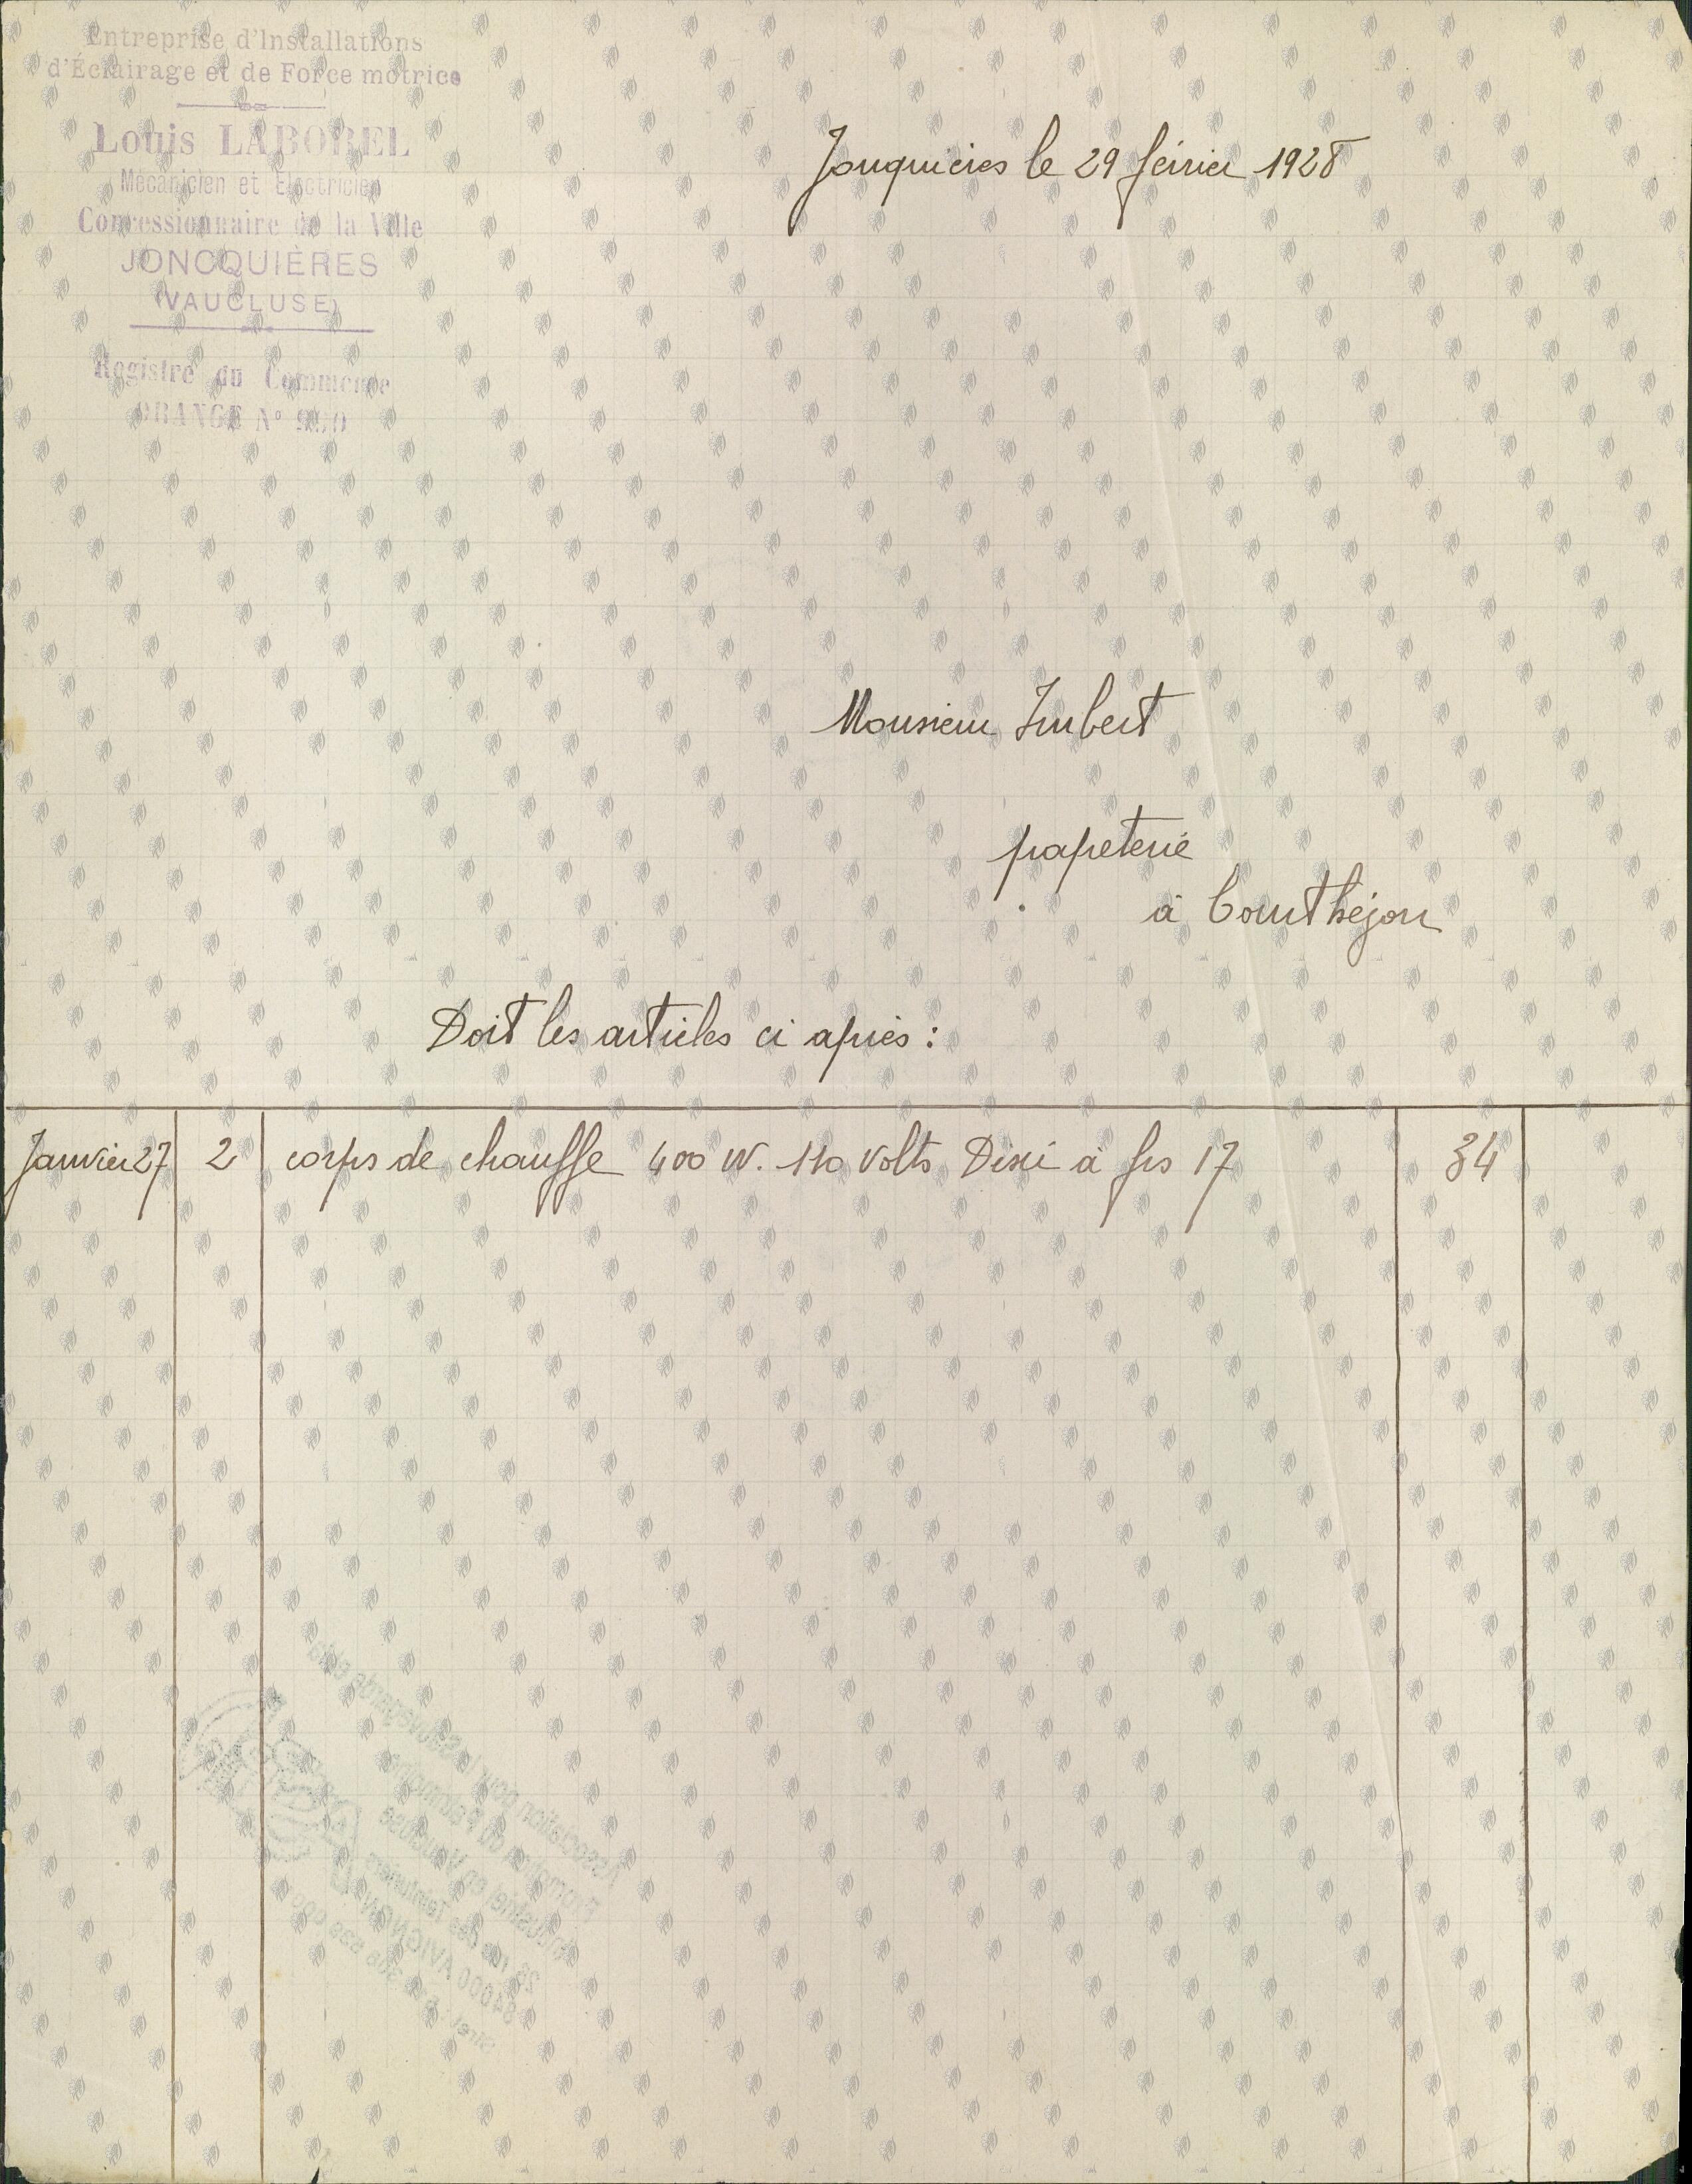 Entreprise d'Installations
d'Éclairage et de Force motrice
Louis LABOREL
Mécanicien et Electricien
Concessionnaire de la Ville
JONCQUIÈRES
(VAUCLUSE)
Registre du Commerce
ORANGE N°
Jonquières le 29 février 1928
Monsieur Imbert
papeterie
à Courthéjon
Doit les articles ci après :
Janvier 27 2 corps de chauffe 400 W. 110 volts Dixi à frs 17 34
Association pour la sauvegarde et la
Promotion du Patrimoine
Industriel en Vaucluse
rue des Teinturiers
84000 AVIGNON